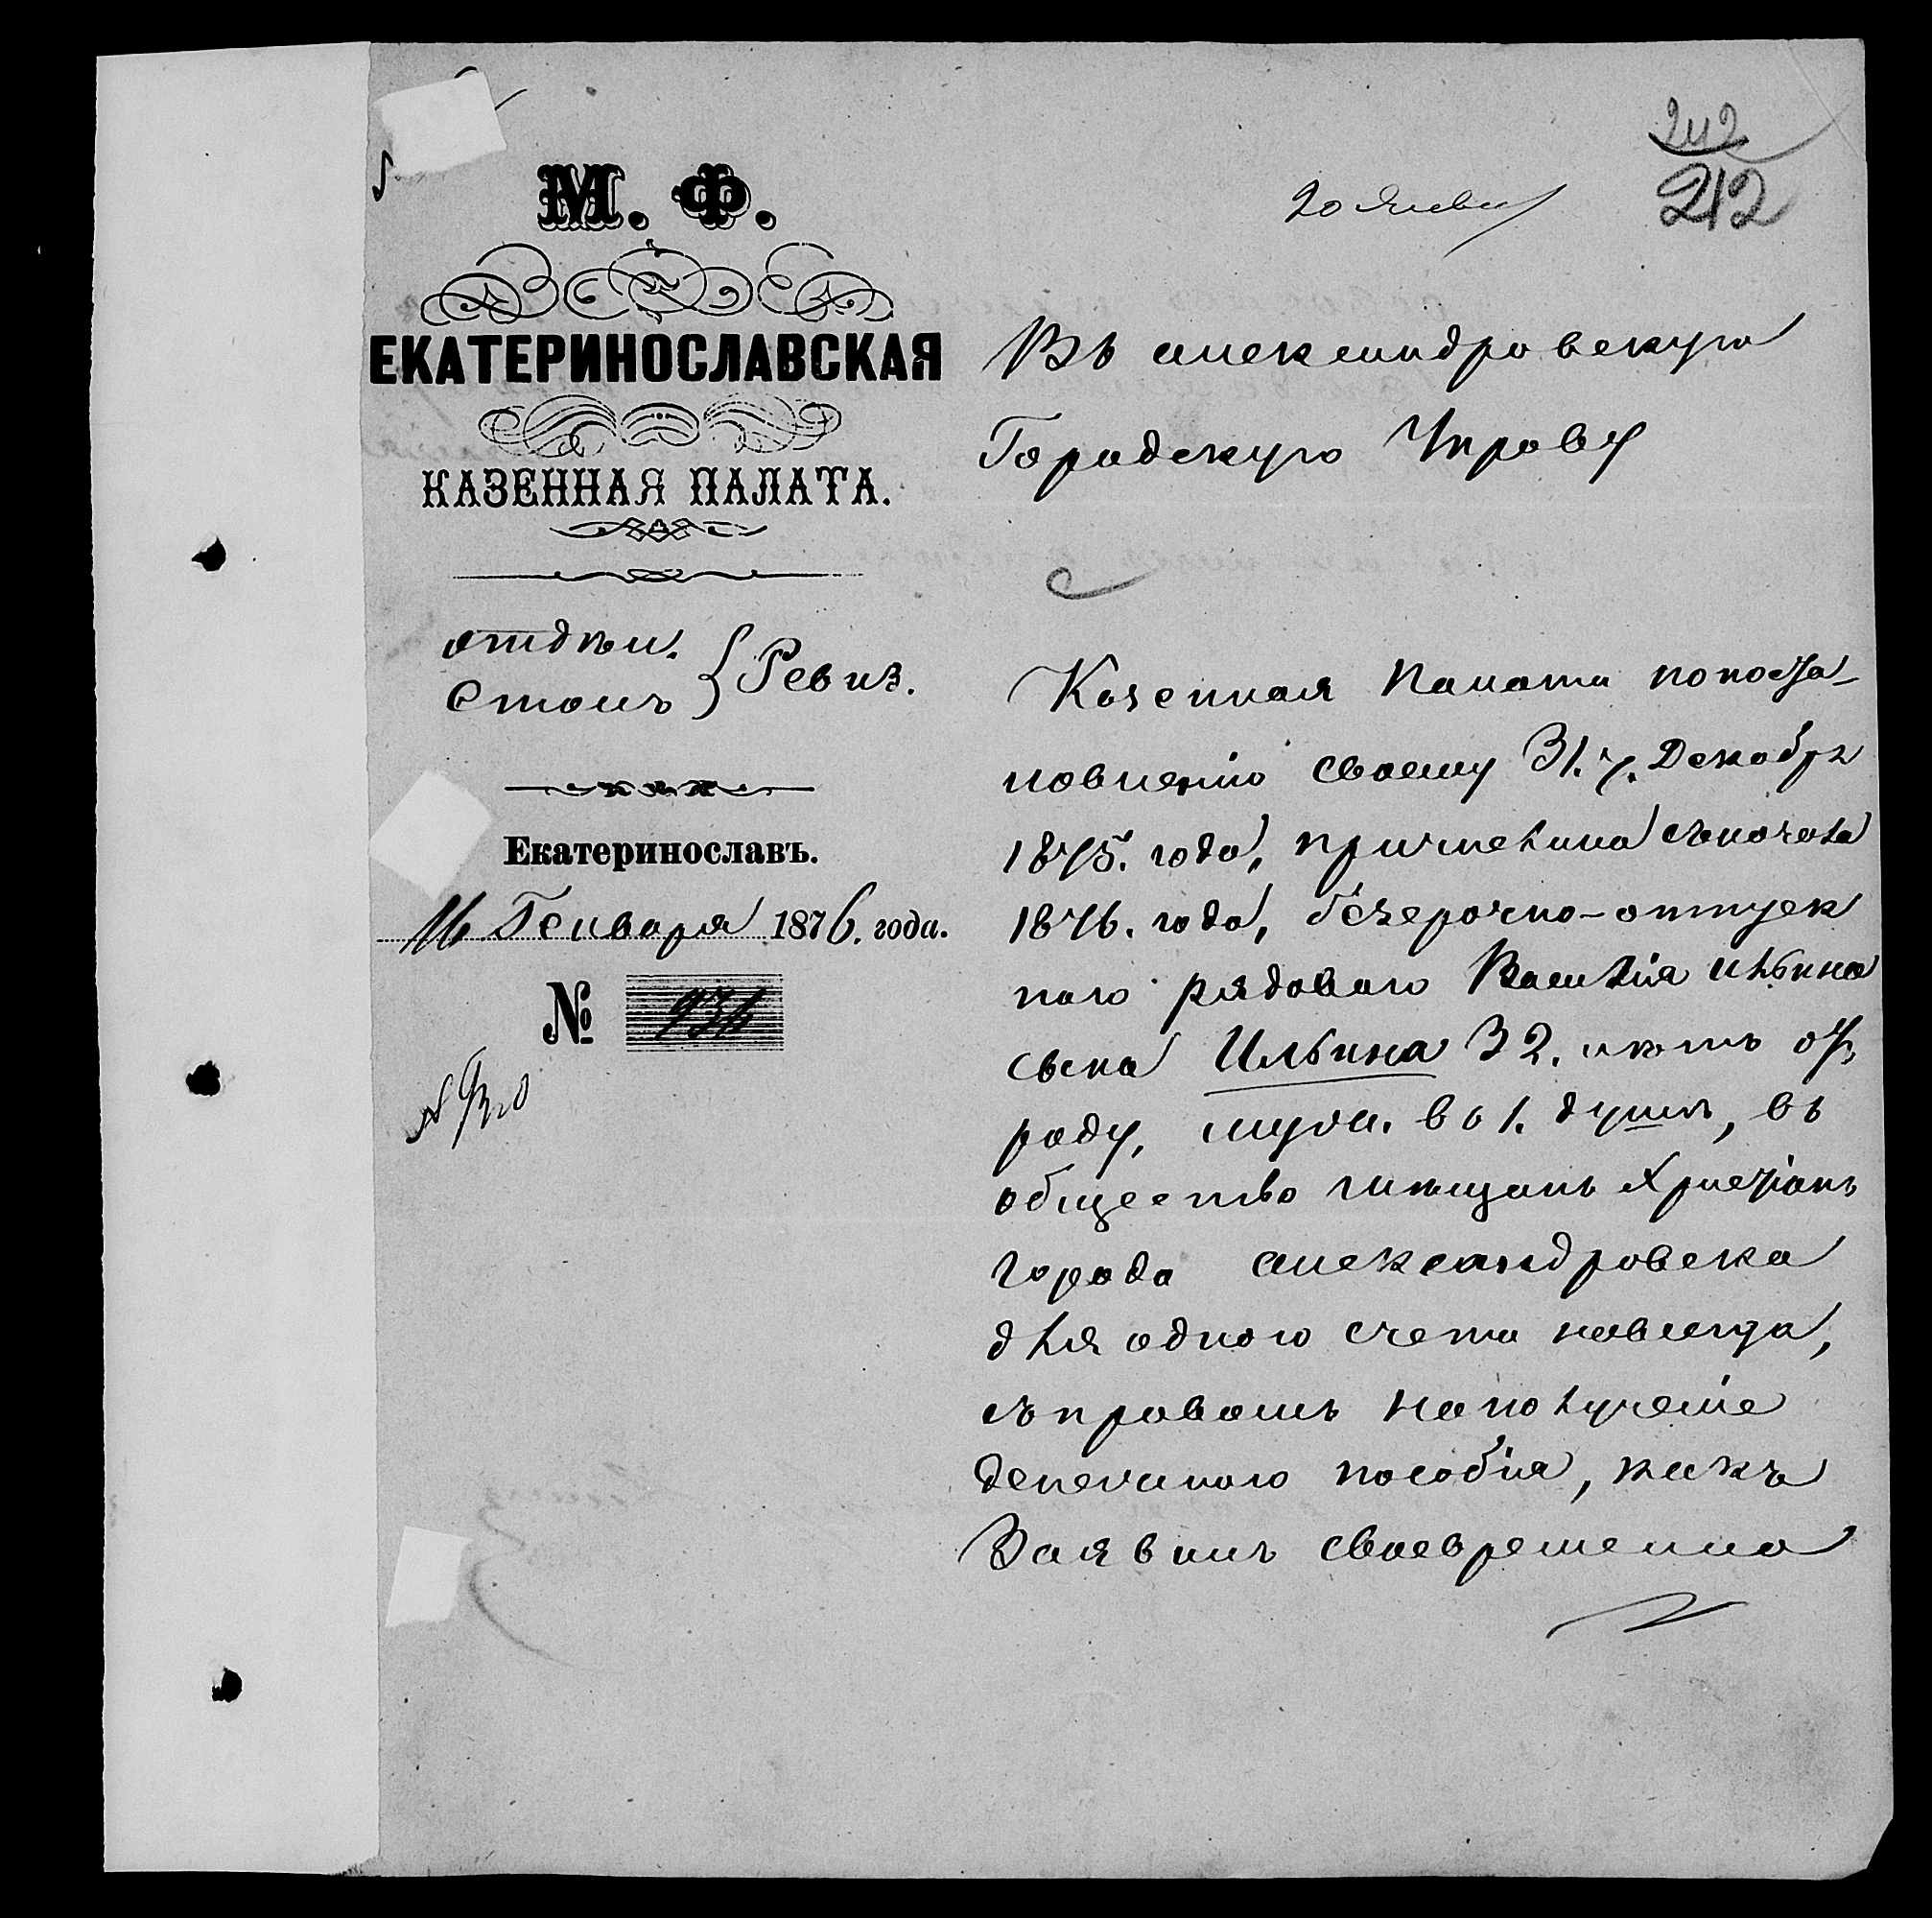 212
212
20 Январ
М. Ф.
ЕКАТЕРИНОСЛАВСКАЯ
КАЗЕННАЯ ПАЛАТА.
Отдѣл.
Столъ
Ревиз.
Екатеринославъ.
16 Генваря 1876. года.
№ 936
Въ Александровскую
Городскую Управу
Казенная Палата по поста-
новленію своему 31. ч. Декабря
1875. года, причислила съ начала
1876. года, безсрочно-отпуск
наго рядоваго Василія Ильина
сына Ильина 32. лѣтъ отъ
роду, муж. въ 1. душѣ, въ
общество мѣщанъ Христіанъ
города Александровска
для одного счета навсегда,
съ правомъ на полученіе
денежнаго пособія, какъ
Заявилъ своевременно